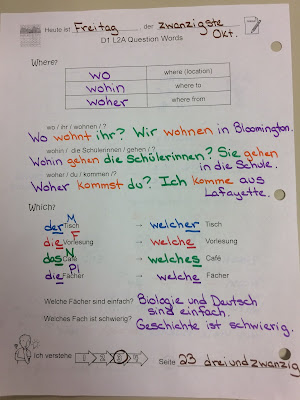 Heute ist Freitag der zwanzigste Okt.
D1 L2A Question Words
Where?
wo where (location)
wohin where to
woher where from
wo / ihr / wohnen / ?
Wo wohnt ihr? Wir wohnen in Bloomington.
wohin / die Schülerinnen / gehen / ?
Wohin gehen die Schülerinnen? Sie gehen
in die Schule.
woher / du / kommen /?
Woher kommst du? Ich komme aus
Lafayette.
Which?
M
der Tisch → welcher Tisch
F
die Vorlesung → welche Vorlesung
N
das Café → welches Café
Pl
die Fächer → welche Fächer
Welche Fächer sind einfach? Biologie und Deutsch
sind einfach.
Welches Fach ist schwierig? Geschichte ist schwierig.
Ich verstehe 1 2 3 4 Seite 23 dreiundzwanzig